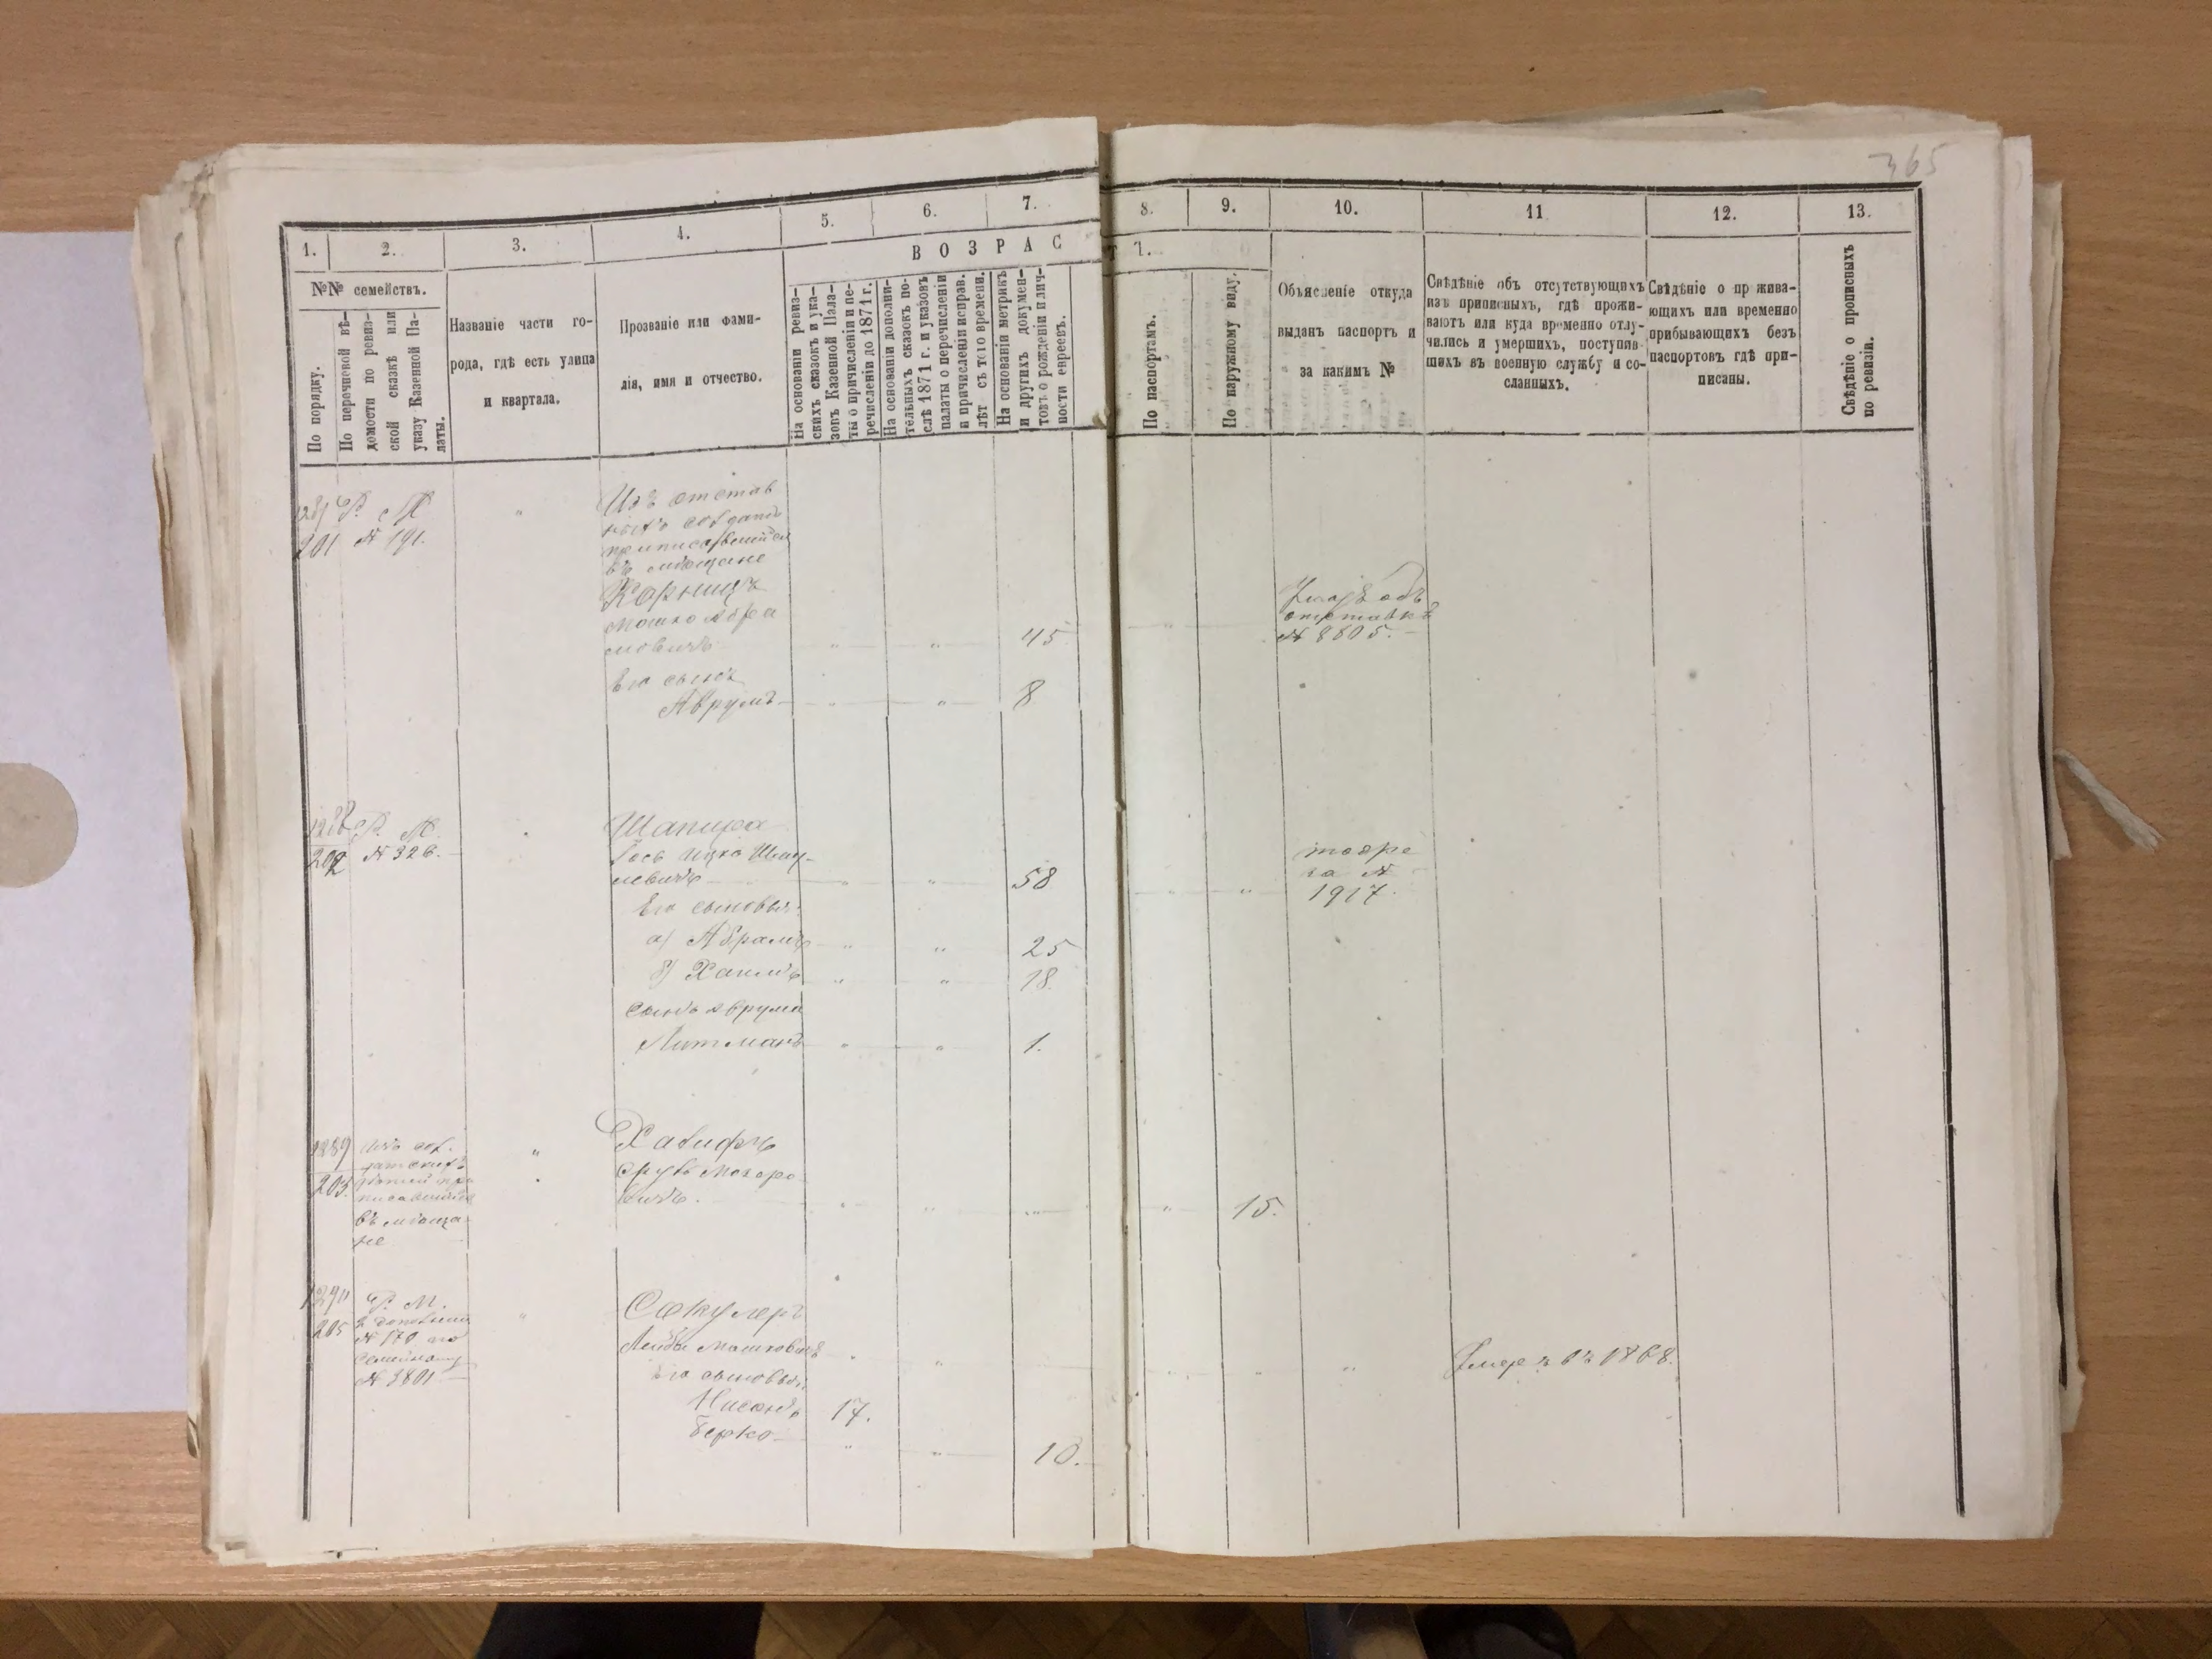 365
1. 2. 3. 4. 5. 6. 7. 8. 9. 10. 11 12. 13.
ВОЗРАСТЪ.
№№ семействъ.
По порядку.
По перечневой вѣ-
домости по ревиз-
ской сказкѣ или
указу Казенной Па-
латы.
Названіе части го-
рода, гдѣ есть улица
и квартала.
Прозваніе или фами-
лія, имя и отчество.
На основаніи ревиз-
скихъ сказокъ и ука-
зовъ Казенной Пала-
ты о причисленіи и пе-
речисленіи до 1871 г.
На основаніи дополни-
тельныхъ сказокъ по-
слѣ 1871 г. и указовъ
палаты о перечисленіи
и причисленіи исправ.
лѣт съ того времени.
На основаніи метрикъ
и другихъ докумен-
товъ о рожденіи и лич-
ности евреевъ.
По паспортамъ.
По наружному виду.
Объясненіе откуда
выданъ паспортъ и
за какимъ №
Свѣдѣніе объ отсутствующихъ
изъ приписныхъ, гдѣ прожи-
ваютъ или куда временно отлу-
чились и умершихъ, поступив-
шихъ въ военную службу и со-
сланныхъ.
Свѣдѣніе о прожива-
ющихъ или временно
прибывающихъ безъ
паспортовъ гдѣ при-
писаны.
Свѣдѣніе о прописныхъ
по ревизіи.
201 № 191.
Изъ отстав
ныхъ солдатъ
приписавшийся
въ мѣщане
Карницъ
Мошко Абра
мовичъ 45
Указъ объ
отставкѣ
№ 8805.
Его сынъ
Аврумъ 8
1288 Р. М. Шапира
202 № 326. Іось Ицко Шму-
левичъ 58
за №
1917.
Его сыновья:
а) Абрамъ 25
б) Хаимъ 18.
сынъ Аврума
Литманъ 1.
1889 изъ сол-
датскихъ
203. дѣтей при
писавшийся
въ мѣща-
не
Халифъ
Сруль
вичъ. 15.
1290 Р. М. Секулеръ
205
№ 170 по
семейному
№ 3801
Лейба Мошковичъ
Умеръ въ 1868.
Его сыновья:
Нисонъ 17.
Берко 10.